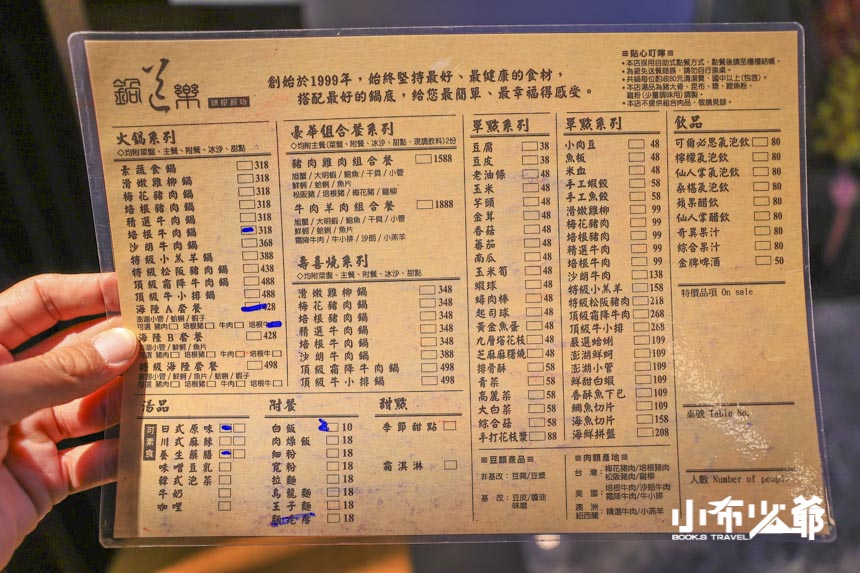 鍋道樂
鍋屋鍋物
創始於1999年，始終堅持最好、最健康的食材，
搭配最好的鍋底，給您最簡單、最幸福得感受。
≡貼心叮嚀≡
本店採用自助式點餐方式，點餐後請至櫃檯結帳。
為避免送餐錯誤，請勿自行換桌。
共鍋每位酌收80元清潔費，國中以上(包含)。
本店湯品為豬大骨、昆布、鹽、鰹魚粉、
雞粉(少量調味用)調製。
本店不提供組合肉品，敬請見諒。
火鍋系列
◇均附菜盤、主餐、附餐、冰沙、甜點
素蔬食鍋 318
滑嫩雞柳鍋 318
梅花豬肉鍋 318
培根豬肉鍋 318
精選牛肉鍋 318
培根牛肉鍋 318
沙朗牛肉鍋 368
特級小羔羊鍋 388
特級松阪豬肉鍋 438
頂級霜降牛肉鍋 488
頂級牛小排鍋 488
海陸A套餐 428
澎湖小管/蛤蜊/蝦子
可選 豬肉 培根豬 牛肉 培根牛
海陸B套餐 428
澎湖小管/鮮蚵/魚片
選 豬肉 培根豬 牛肉 培根牛
特級海陸套餐 498
澎湖小管/鮮蚵/魚片/蛤蜊/蝦子
選 豬肉 培根豬 牛肉 培根牛
豪華組合餐系列
◇均附(菜盤、主餐、附餐、冰沙、甜點、現調飲料)2份
豬肉雞肉組合餐 1588
旭蟹/大明蝦/鮑魚/干貝/小管
鮮蚵/蛤蜊/魚片
松阪豬/培根豬/梅花豬/雞柳
牛肉羊肉組合餐 1888
旭蟹/大明蝦/鮑魚/干貝/小管
鮮蚵/蛤蜊/魚片
霜降牛肉/牛小排/沙朗/小羔羊
壽喜燒系列
◇均附菜盤、主餐、附餐、冰沙、甜點
滑嫩雞柳鍋 348
梅花豬肉鍋 348
培根豬肉鍋 348
精選牛肉鍋 348
培根牛肉鍋 348
沙朗牛肉鍋 388
頂級霜降牛肉鍋 498
頂級牛小排鍋 498
單點系列
豆腐 38
豆皮 38
老油條 38
玉米 38
芋頭 38
金茸 38
香菇 38
蕃茄 38
南瓜 38
玉米筍 38
蝦球 48
蟳肉棒 48
起司球 48
黃金魚蛋 48
九層塔花枝 48
芝麻麻糬燒 48
排骨酥 58
青菜 58
高麗菜 58
大白菜 58
綜合菇 58
手打花枝漿 88
單點系列
小肉豆 48
魚板 48
米血 48
手工蝦餃 58
手工魚餃 58
滑嫩雞柳 99
梅花豬肉 99
培根豬肉 99
精選牛肉 99
培根牛肉 99
沙朗牛肉 138
特級小羔羊 158
特級松阪豬肉 218
頂級霜降牛肉 268
頂級牛小排 268
嚴選蛤蜊 109
澎湖鮮蚵 109
澎湖小管 109
鮮甜白蝦 109
香酥魚下巴 109
鯛魚切片 109
海魚切片 158
海鮮拼盤 208
飲品
可爾必思氣泡飲 80
檸檬氣泡飲 80
仙人掌氣泡飲 80
桑椹氣泡飲 80
蘋果醋飲 80
仙人掌醋飲 80
奇異果汁 80
綜合果汁 80
金牌啤酒 50
特價品項 On sale
桌號 Table No.
人數 Number of peopl
湯品
可素食
日式原味
川式麻辣
養生藥膳
味噌豆乳
韓式泡菜
牛奶
咖哩
附餐
白飯 2 10
肉燥飯 18
細粉 18
寬粉 18
拉麵 18
烏龍麵 18
王子麵 18
18
甜點
季節甜點
霜淇淋
≡豆類產品≡
非基改：豆腐/豆漿
基改：豆皮/醬油
味噌
≡肉類產地≡
台灣：梅花豬肉/培根豬肉
松阪豬肉/雞柳
美國：培根牛肉/沙朗牛肉
霜降牛肉/牛小排
澳洲
紐西蘭：精選牛肉/小羔羊
小布少爺
BOOK.S TRAVEL